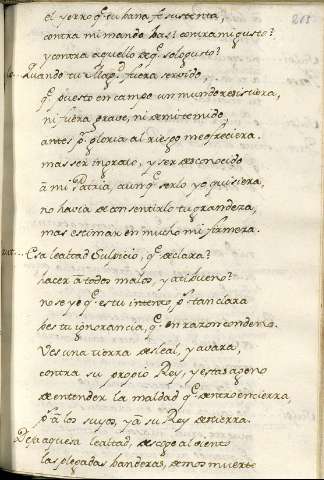 el yerro q̃ tu hana
contra mi mando has? contra mi gusto?
y contra aquello de q̃ solo gusto?
Quando tu Magd. fuera servido,
q̃ puesto en campo un mundo resistiera,
ni fuera grave, ni de mi temido,
antes p̃ gloria al riesgo me ofreciera.
mas ser ingrato, y ser desconocido
a mi Patria, aunq̃ serlo yo quisiera,
no havia de consentirlo tu grandeza,
mas estimar en mucho mi firmeza.
Esa lealtad Sulpicio, q̃ declara?
hacer a todos malos, y a ti bueno?
no se ye q̃ es tu intento, p̃s tan clara
ves tu ignorancia, q̃ en razon condeno.
Ves una tierra desleal, y avara,
contra su propio Rey, y estas ageno
de entender la maldad q̃ dentro encierra,
p̃s a los suyos, y a su Rey destierra.
Deja aquesa lealtad, descoge al viento
las plegadas banderas, demos muerte